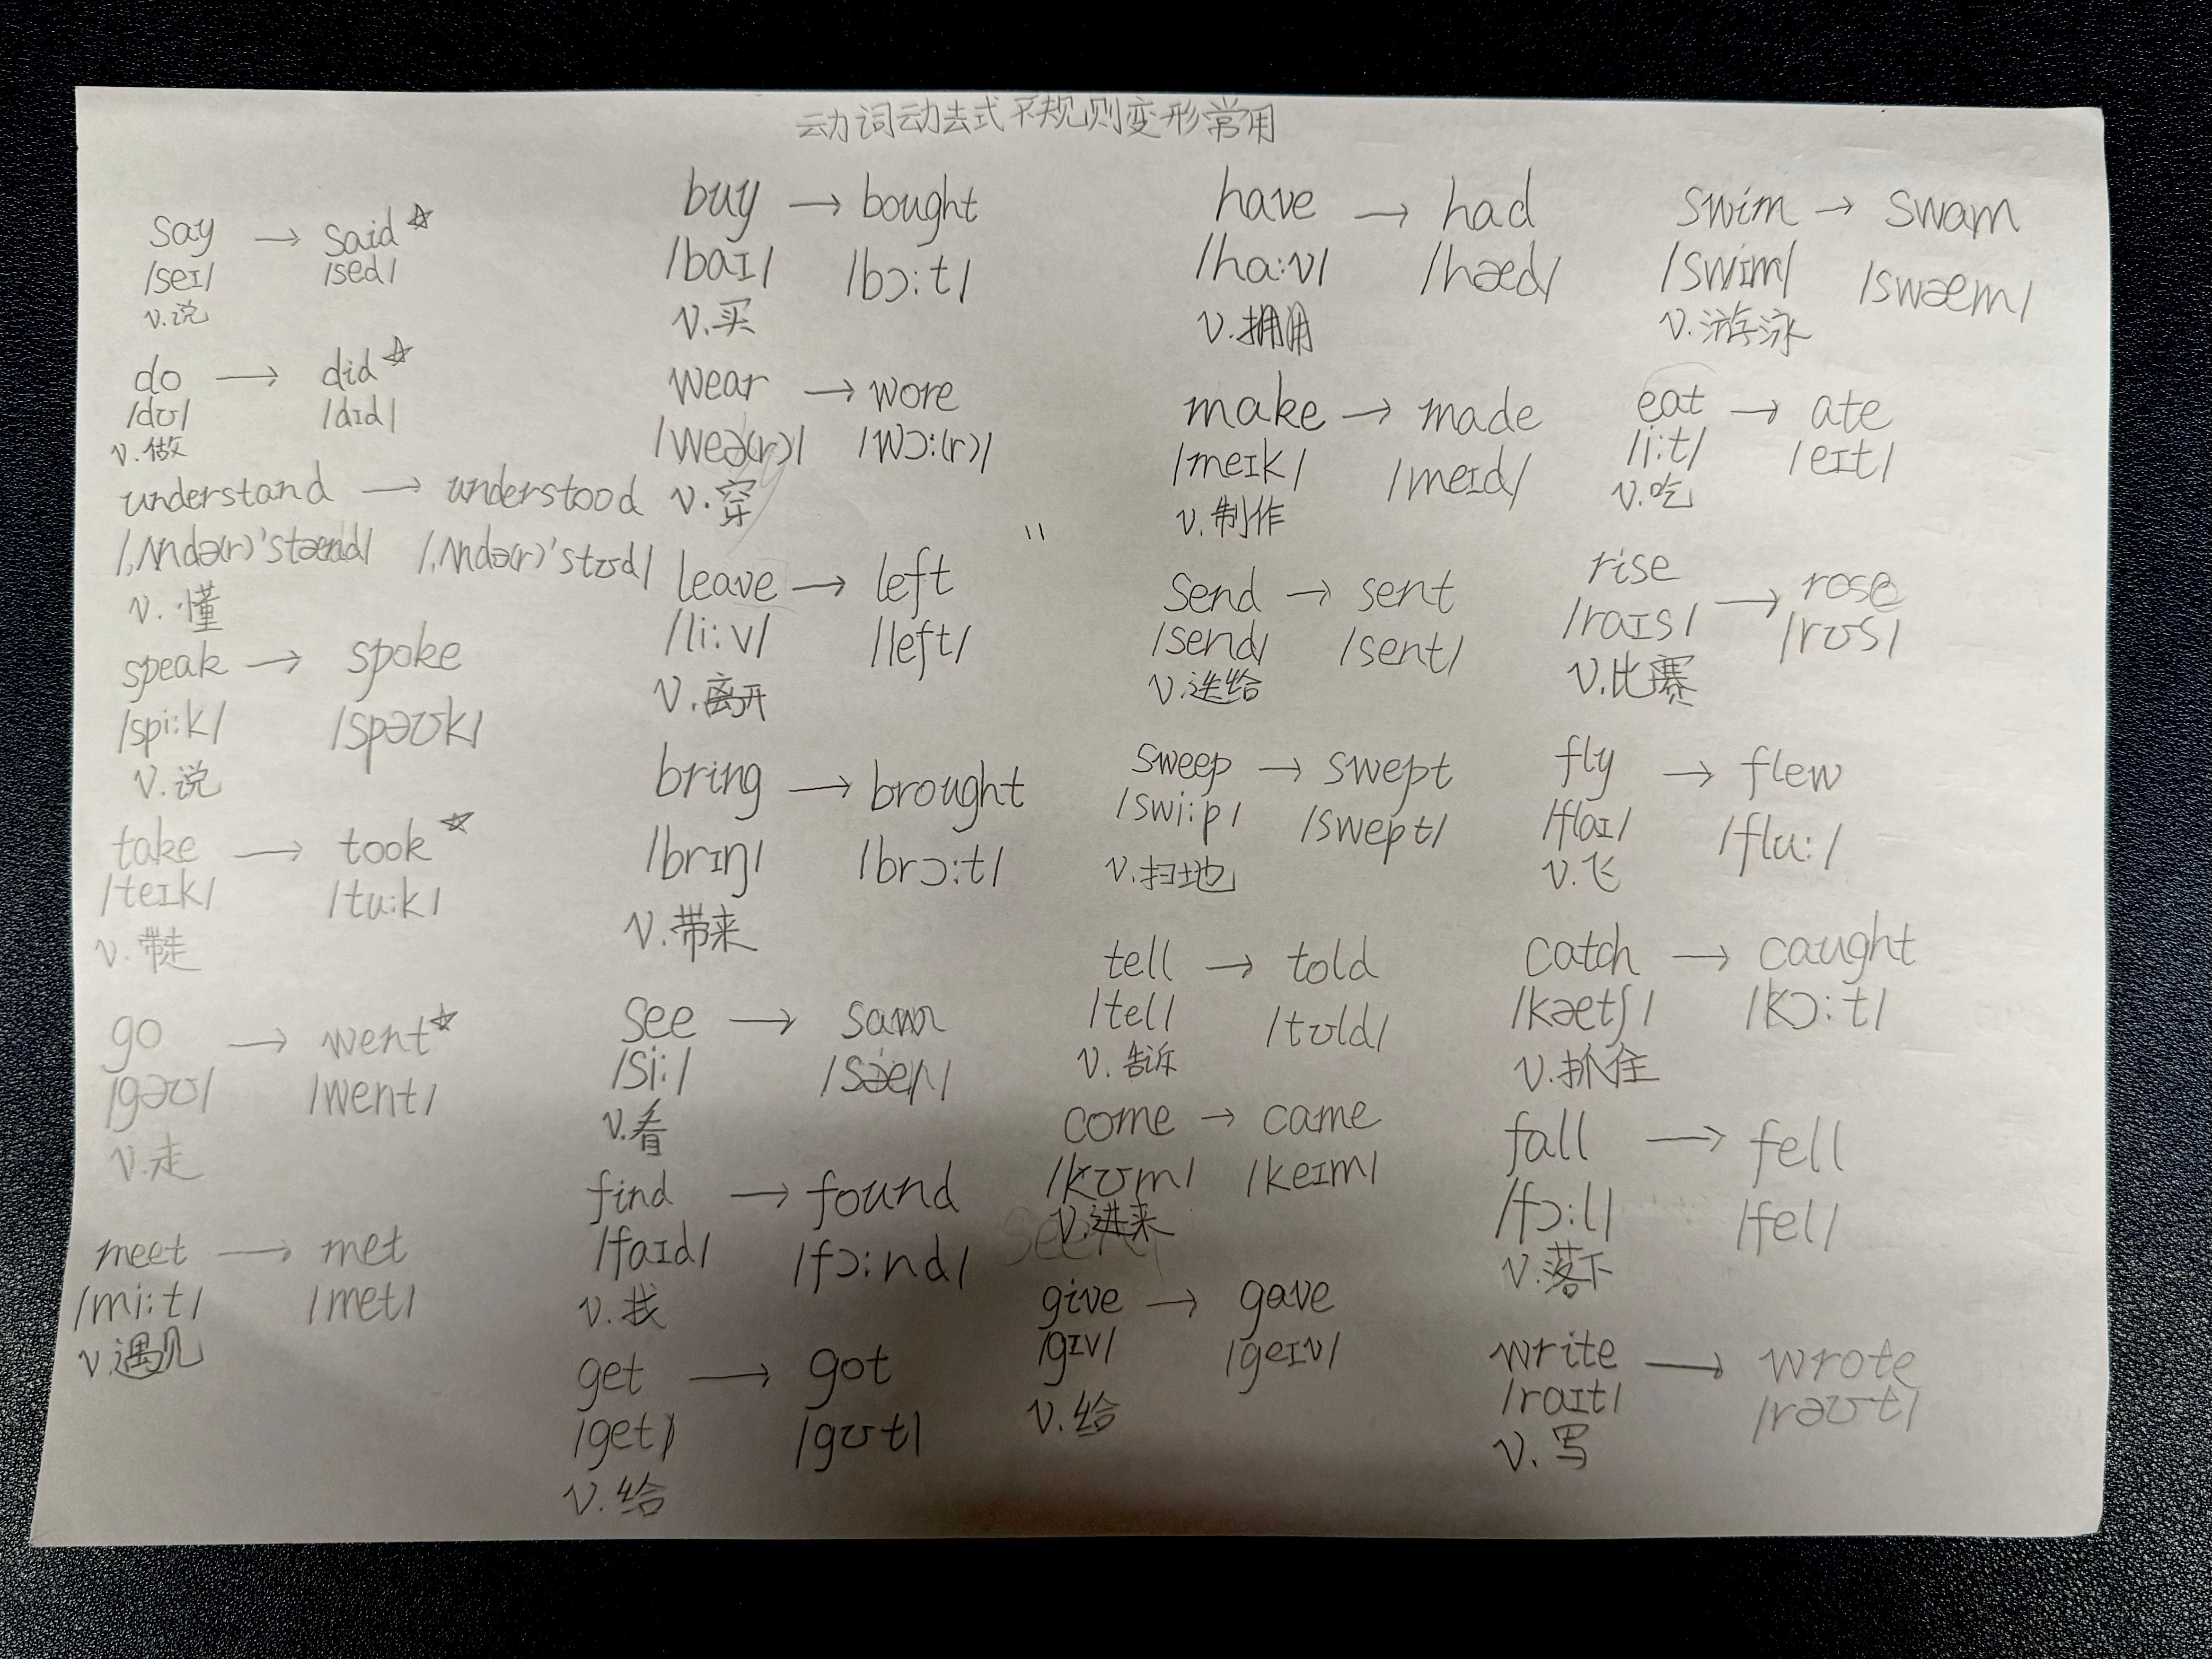 动词动去式不规则变形常用
say → said ☆
/seɪ/ /sed/
v.说
do → did ☆
/dʊ/ /dɪd/
v.做
understand → understood
/ˌʌndə(r)'stænd/ /ˌʌndə(r)'stʊd/
v.懂
speak → spoke
/spi:k/ /spəʊk/
v.说
take → took ☆
/teɪk/ /tu:k/
v.带走
go → went ☆
/gəʊ/ /went/
v.走
meet → met
/mi:t/ /met/
v.遇见
buy → bought
/baɪ/ /bɔ:t/
v.买
wear → wore
/weə(r)/ /wɔ:(r)/
v.穿
leave → left
/li:v/ /left/
v.离开
bring → brought
/brɪŋ/ /brɔ:t/
v.带来
see → saw
/si:/
v.看
find → found
/faɪd/ /fɔ:nd/
v.找
get → got
/get/ /gʊt/
v.给
have → had
/ha:v/ /hæd/
v.拥用
make → made
/meɪk/ /meɪd/
v.制作
send → sent
/send/ /sent/
v.送给
sweep → swept
/swi:p/ /swept/
v.扫地
tell → told
/tel/ /tʊld/
v.告诉
come → came
/kʊm/ /keɪm/
v.进来
give → gave
/gɪv/ /geɪv/
v.给
swim → swam
/swim/ /swæm/
v.游泳
eat → ate
/i:t/ /eɪt/
v.吃
rise → rose
/raɪs/ /rʊs/
v.比赛
fly → flew
/flaɪ/ /flu:/
v.飞
catch → caught
/kætʃ/ /kɔ:t/
v.抓住
fall → fell
/fɔ:l/ /fel/
v.落下
write → wrote
/raɪt/ /rəʊt/
v.写